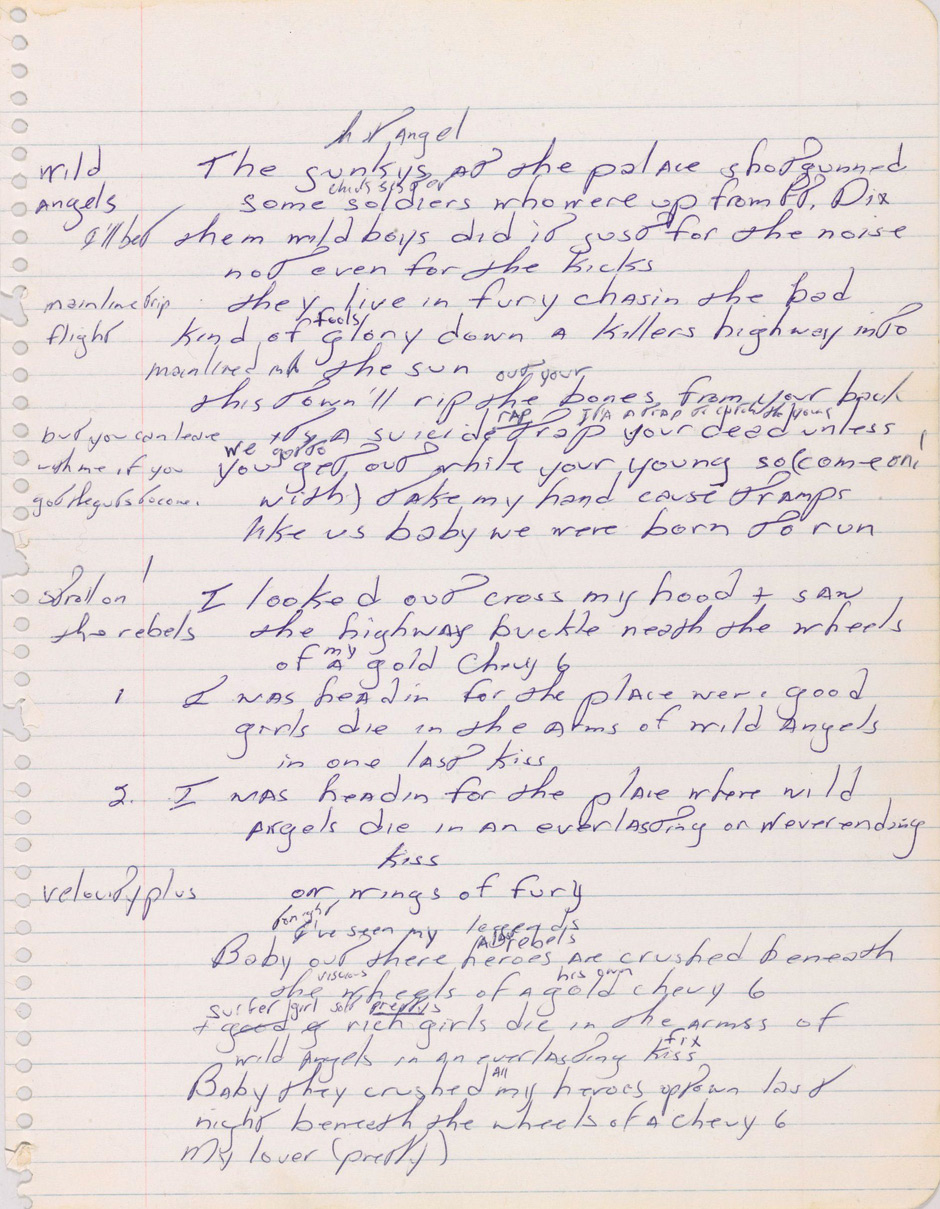 Angel
wild The junkys at the palace shotgunned
chevs sister
Angels some soldiers who were up from Ft. Dix
I'll bet them wild boys did it just for the noise
not even for the kicks
mainline trip they live in fury chasin the bad
fools
flight kind of glory down a killers highway into
mainlined into the sun
out your
this town'll rip the bones from your back
rap its a trap to catch the young
but you can leave its a suicide trap your dead unless
we gotto
with me if you you get out while your young so (come on
got the guts to come. with) take my hand cause tramps
like us baby we were born to run
stroll on I looked out cross my hood + saw
the rebels the highway buckle neath the wheels
my
of a gold Chevy 6
1 I was headin for the place were good
girls die in the arms of wild Angels
in one last kiss
2. I was headin for the place where wild
angels die in an everlasting or neverending
kiss
velocity plus on wings of fury
tonight
I've seen my legends
rebels
Baby out there heroes are crushed beneath
visions his own
the wheels of a gold chevy 6
girl
+ good rich girls die in the armss of
fix
wild angels in an everlasting kiss
All
Baby they crushed my heroes uptown last
night beneath the wheels of a Chevy 6
My lover (pretty)